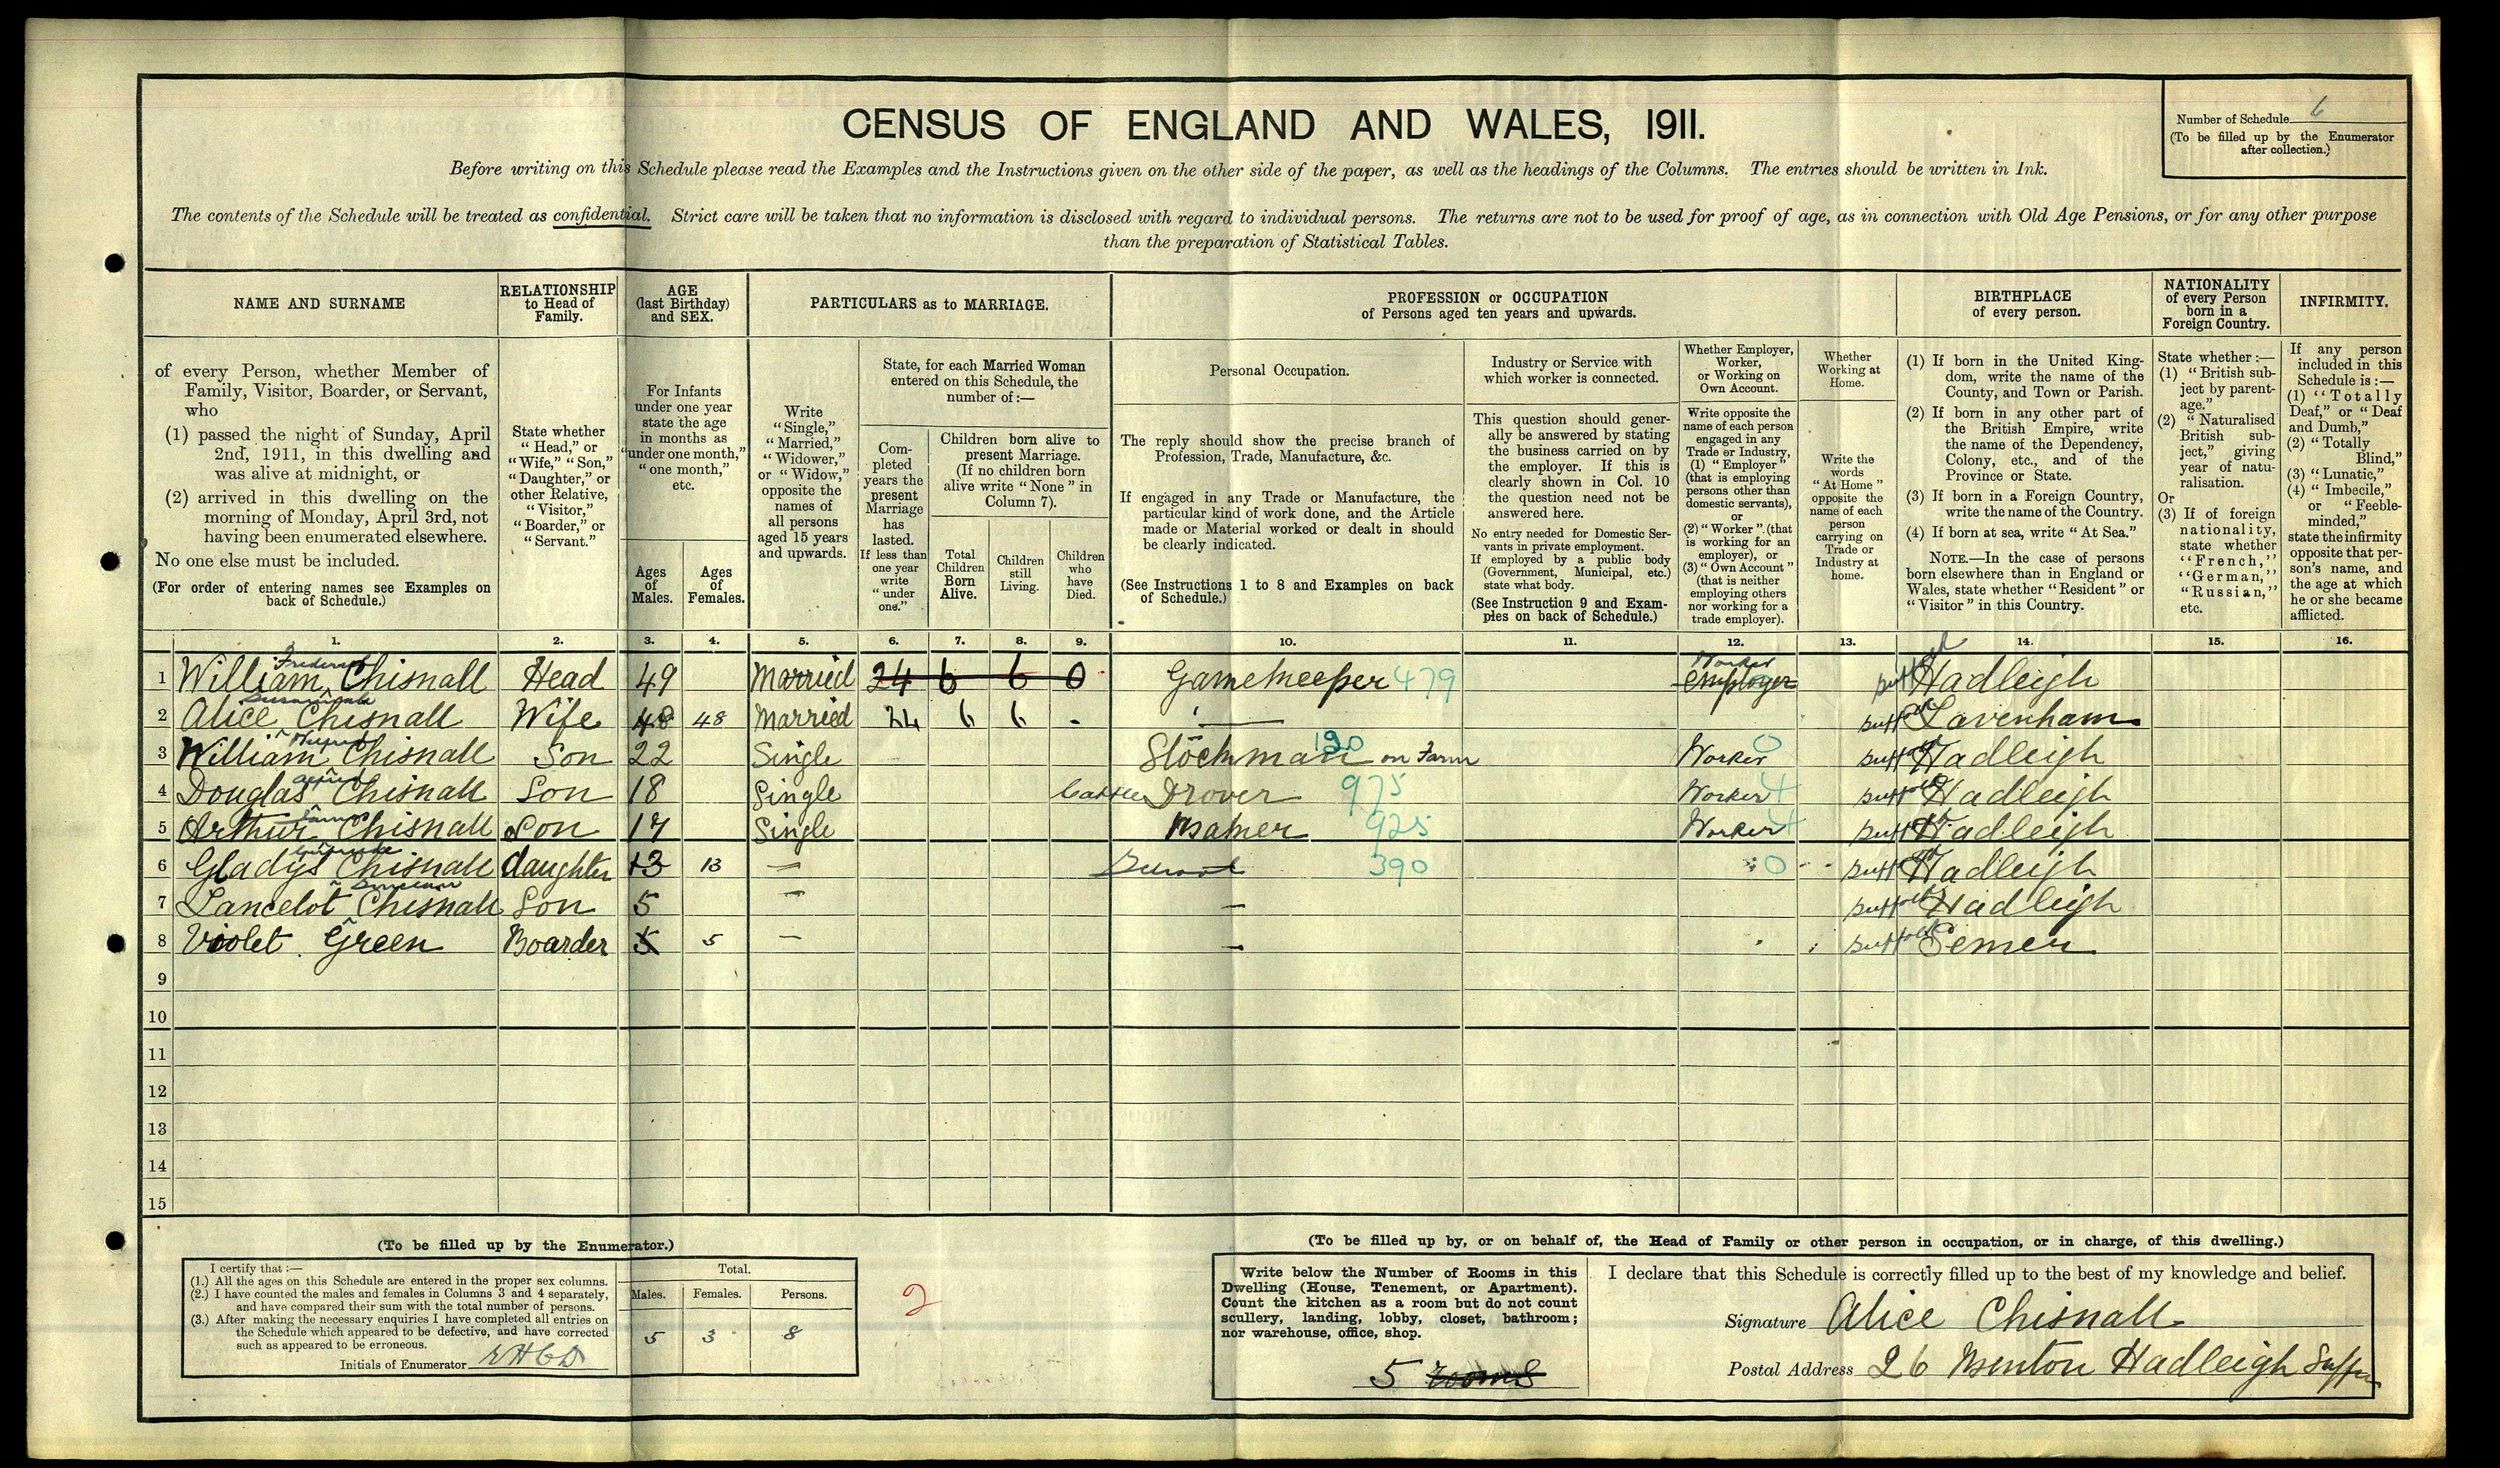 CENSUS OF ENGLAND AND WALES, 1911.
Number of Schedule 6
(To be filled up by the Enumerator
after collection.)
Before writing on this Schedule please read the Examples and the Instructions given on the other side of the paper, as well as the headings of the Columns. The entries should be written in Ink.
The contents of the Schedule will be treated as confidential. Strict care will be taken that no information is disclosed with regard to individual persons. The returns are not to be used for proof of age, as in connection with Old Age Pensions, or for any other purpose
than the preparation of Statistical Tables.
NAME AND SURNAME
of every Person, whether Member of
Family, Visitor, Boarder, or Servant,
who
(1) passed the night of Sunday, April
2nd, 1911, in this dwelling and
was alive at midnight, or
(2) arrived in this dwelling on the
morning of Monday, April 3rd, not
having been enumerated elsewhere.
No one else must be included.
(For order of entering names see Examples on
back of Schedule.)
RELATIONSHIP
to Head of
Family.
State whether
"Head," or
"Wife," "Son,"
"Daughter," or
other Relative,
"Visitor,"
"Boarder," or
"Servant."
AGE
(last Birthday)
and SEX.
For Infants
under one year
state the age
in months as
"under one month,"
"one month,"
etc.
Ages
of
Males.
Ages
of
Females.
PARTICULARS as to MARRIAGE.
Write
"Single,"
"Married,"
"Widower,"
or "Widow,"
opposite the
names of
all persons
aged 15 years
and upwards.
State, for each Married Woman
entered on this Schedule, the
number of :—
Com-
pleted
years the
present
Marriage
has
lasted.
If less than
one year
write
"under
one."
Children born alive to
present Marriage.
(If no children born
alive write "None" in
Column 7).
Total
Children
Born
Alive.
Children
still
Living.
Children
who
have
Died.
PROFESSION or OCCUPATION
of Persons aged ten years and upwards.
Personal Occupation.
The reply should show the precise branch of
Profession, Trade, Manufacture, &c.
If engaged in any Trade or Manufacture, the
particular kind of work done, and the Article
made or Material worked or dealt in should
be clearly indicated.
(See Instructions 1 to 8 and Examples on back
of Schedule.)
Industry or Service with
which worker is connected.
This question should gener-
ally be answered by stating
the business carried on by
the employer. If this is
clearly shown in Col. 10
the question need not be
answered here.
No entry needed for Domestic Ser-
vants in private employment.
If employed by a public body
(Government, Municipal, etc.)
state what body.
(See Instruction 9 and Exam-
ples on back of Schedule.)
Whether Employer,
Worker,
or Working on
Own Account.
Write opposite the
name of each person
engaged in any
Trade or Industry,
(1) "Employer"
(that is employing
persons other than
domestic servants),
or
(2) "Worker" (that
is working for an
employer), or
(3) "Own Account"
(that is neither
employing others
nor working for a
trade employer).
Whether
Working at
Home.
Write the
words
"At Home"
opposite the
name of each
person
carrying on
Trade or
Industry at
home.
BIRTHPLACE
of every person.
(1) If born in the United King-
dom, write the name of the
County, and Town or Parish.
(2) If born in any other part of
the British Empire, write
the name of the Dependency,
Colony, etc., and of the
Province or State.
(3) If born in a Foreign Country,
write the name of the Country.
(4) If born at sea, write "At Sea."
NOTE.—In the case of persons
born elsewhere than in England or
Wales, state whether "Resident" or
"Visitor" in this Country.
NATIONALITY
of every Person
born in a
Foreign Country.
State whether :—
(1) "British sub-
ject by parent-
age."
(2) "Naturalised
British sub-
ject," giving
year of natu-
ralisation.
Or
(3) If of foreign
nationality,
state whether
"French,"
"German,"
"Russian,"
etc.
INFIRMITY.
If any person
included in this
Schedule is :—
(1) "Totally
Deaf," or "Deaf
and Dumb,"
(2) "Totally
Blind,"
(3) "Lunatic,"
(4) "Imbecile,"
or "Feeble-
minded,"
state the infirmity
opposite that per-
son's name, and
the age at which
he or she became
afflicted.
1. 2. 3. 4. 5. 6. 7. 8. 9. 10. 11. 12. 13. 14. 15. 16.
1 William Frederick Chisnall Head 49 Married 24 6 6 0 Gamekeeper 479 Worker Employer Suffolk Hadleigh
2 Alice Susannah Chisnall Wife 48 48 Married 24 6 6 - — Suffolk Lavenham
3 William Wilfred Chisnall Son 22 Single Stockman on Farm 120 Worker 0 Suffolk Hadleigh
4 Douglas Alfred Chisnall Son 18 Single Cattle Drover 975 Worker 4 Suffolk Hadleigh
5 Arthur James Chisnall Son 17 Single 925 Worker 4 Suffolk Hadleigh
6 Gladys Gertrude Chisnall daughter 13 13 — School 390 0 Suffolk Hadleigh
7 Lancelot Chisnall Son 5 — — Suffolk Hadleigh
8 Violet Green Boarder 5 5 — — Suffolk Semer
9
10
11
12
13
14
15
(To be filled up by the Enumerator.)
I certify that :—
(1.) All the ages on this Schedule are entered in the proper sex columns.
(2.) I have counted the males and females in Columns 3 and 4 separately,
and have compared their sum with the total number of persons.
(3.) After making the necessary enquiries I have completed all entries on
the Schedule which appeared to be defective, and have corrected
such as appeared to be erroneous.
Initials of Enumerator
Total.
Males. Females. Persons.
5 3 8
2
(To be filled up by, or on behalf of, the Head of Family or other person in occupation, or in charge, of this dwelling.)
Write below the Number of Rooms in this
Dwelling (House, Tenement, or Apartment).
Count the kitchen as a room but do not count
scullery, landing, lobby, closet, bathroom;
nor warehouse, office, shop.
5 rooms
I declare that this Schedule is correctly filled up to the best of my knowledge and belief.
Signature Alice Chisnall
Postal Address 26 Benton Hadleigh Suffolk